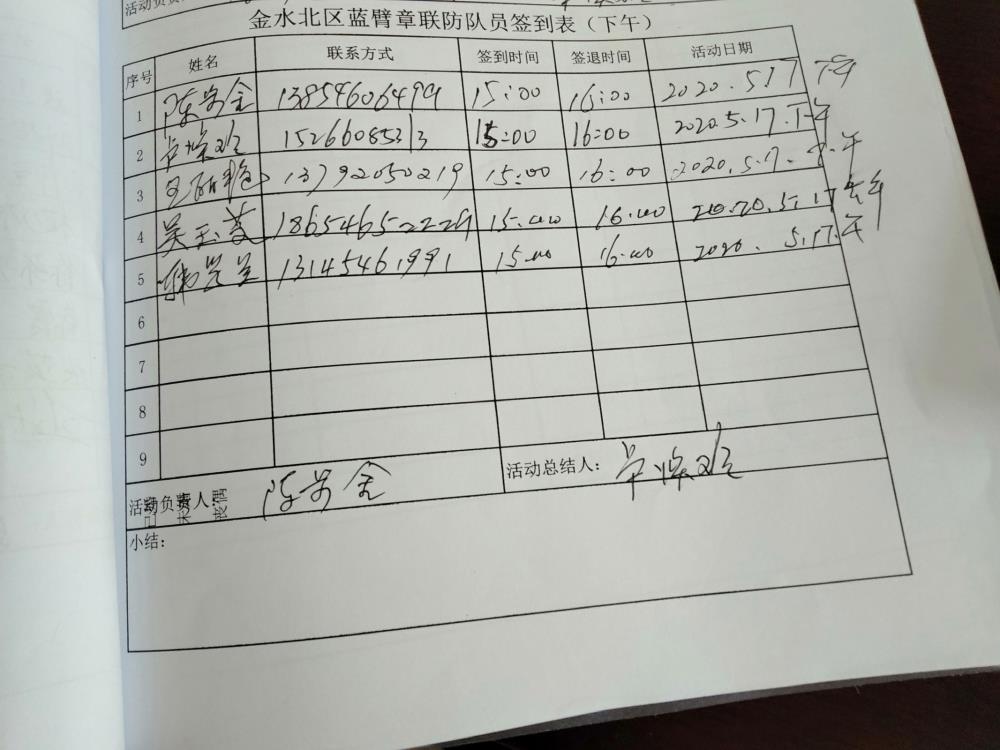 活动负责
金水北区蓝臂章联防队员签到表（下午）
序号 姓名 联系方式 签到时间 签退时间 活动日期
1 陈 金 13854606499 15:00 16:00 2020.5.17 下午
2 15266085313 15:00 16:00 2020.5.17.下午
3 13792050219 15:00 16:00 2020.5.17.下午
4 吴玉 18654652229 15.00 16.00 2020.5.17 下午
5 13145461991 15.00 16.00 2020.5.17.下午
6
7
8
9
活动负责人: 陈 金 活动总结人:
小结: